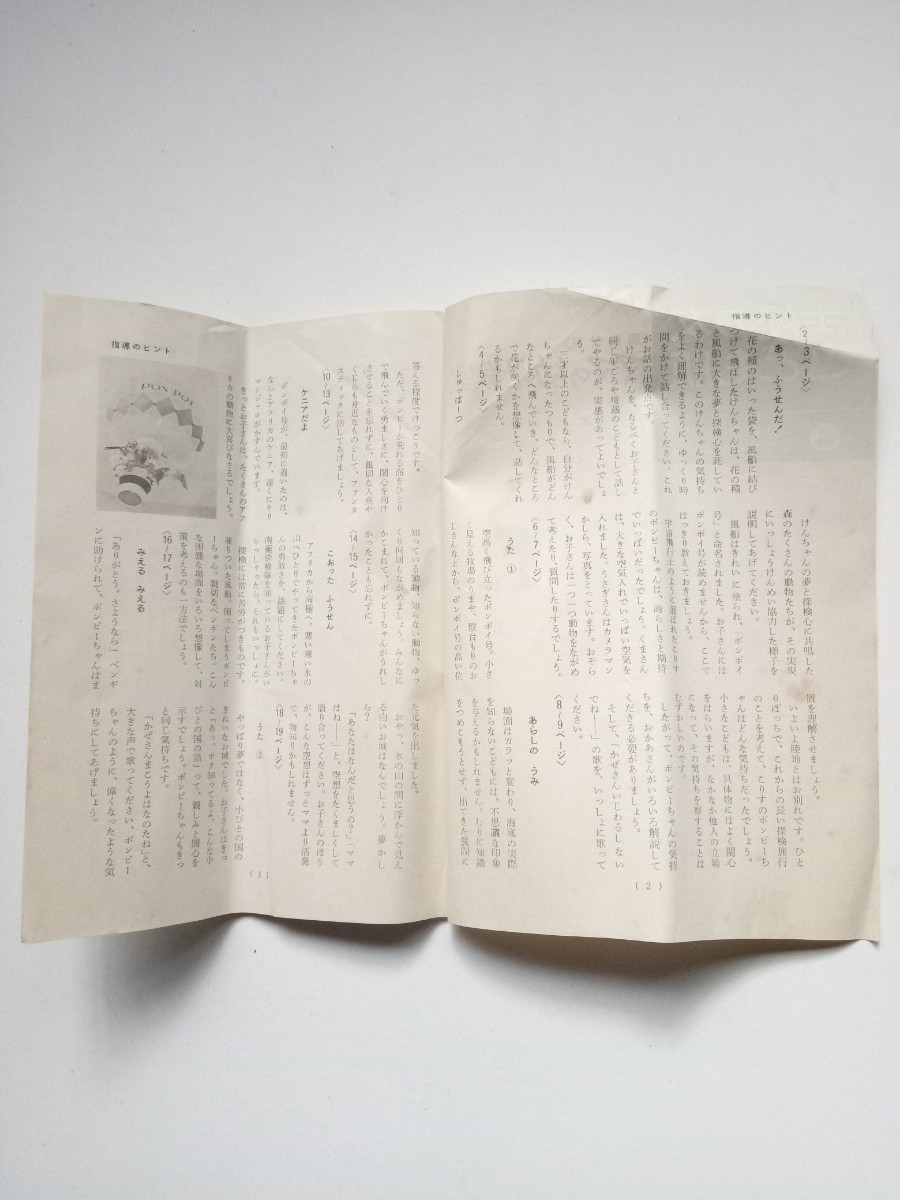 指導のヒント
〈2~3ページ〉
あっ、ふうせんだ!
花の種のはいった袋を、風船に結び
つけて飛ばしたけんちゃんは、花の種
と風船に大きな夢と探検心を託してい
るわけです。このけんちゃんの気持ち
をよく理解できるように、ゆっくり時
間をかけて話し合ってください。これ
がお話の出発点です。
けんちゃんを、なるべくお子さんと
同じ年ごろや境遇のこどもとして話し
てやるのが、実感があってよいでしょ
う。
三才以上のこどもなら、自分がけん
ちゃんになったつもりで、風船がどん
なところへ飛んでいき、どんなところ
で花がかくかを想像して、話してくれ
るかもしれません。
〈4~5ページ〉
しゅっぱーつ
けんちゃんの夢と探検心に共鳴した
森のたくさんの動物たちが、その実現
にいっしょうけんめい協力した様子を
説明してあげてください。
風船はきれいに塗られ、「ポンポイ
号」と命名されました。お子さんには
ポンポイ号が読めませんから、ここで
はっきり教えておきましょう。
宇宙飛行士のように選ばれたこりす
のポンピーちゃんは、誇らしさと期待
でいっぱいだったでしょう。くまさん
は、大きな空気入れでいっぱい空気を
入れました。うさぎさんはカメラマン
かしら、写真をとっています。おそら
く、お子さんは一つ一つ動物をながめ
て考えたり質問したりするでしょう。
〈6~7ページ〉
うた ①
空高く飛び立ったポンポイ号。小さ
く見える牧場のうまや、燈台もりのお
じさんなどから、ポンポイ号の高い位
置を理解させましょう。
いよいよ陸地とはお別れです。ひと
りぼっちで、これからの長い探検旅行
のことを考えて、こりすのポンピーち
ゃんはどんな気持ちだったでしょう。
小さなこどもは、具体物にはよく関心
をはらいますが、なかなか他人の立場
になって、その気持ちを察することは
むずかしいのです。
したがって、ポンピーちゃんの気持
ちを、おかあさんがいろいろ解説して
くださる必要がありましょう。
そして、「かぜさんいじわるしない
でね!」の歌を、いっしょに歌って
ください。
〈8~9ページ〉
あらしの うみ
場面はガラッと変わり、海底の実際
を知らないこどもには、不思議な印象
を与えるかもしれません。むりに知識
をつめこもうとせず、出てきた質問に
(2)
答える程度でけっこうです。
ただ、ポンピーが荒れる海をひとり
で飛んでいく勇ましさに、関心を向け
させることを忘れずに、親切な人魚や
くじらも身近なものにして、ファンタ
スティックに話してあげましょう。
〈10~13ページ〉
ケニアだよ
ポンポイ号が、最初に着いたのは、
なんとアフリカのケニア、遠くにキリ
マンジャロがかすんでいます。
きっとお子さんは、たくさんのアフ
リカの動物に大喜びなさるでしょう。
PON POI
指導のヒント
知っている動物、知らない動物、ゆっ
くり何回もながめましょう。みんなに
かこまれて、ポンピーちゃんがうれし
かったことも忘れずに。
〈14~15ページ〉
こおった ふうせん
アフリカから南極へ。寒い寒い氷の
山へひとりでやってきたポンピーちゃ
んの勇敢さを、話題にしてください。
南極探検隊を知っているお子さんがい
らっしゃったら、それもいっしょに。
探検には常に苦労がつきものです。
凍りついた風船、困ってしまうポンピ
ーちゃん。親切なペンギンたち。こん
な困難な場面をいろいろ想像して、対
策を考えるのも一方法でしょう。
〈16~17ページ〉
みえる みえる
「ありがとう。さようなら」 ペンギ
ンに助けられて、ポンピーちゃんはま
た元気を出しました。
おやっ、氷の山の間に浮かんで見え
る白いお城はなんでしょう。夢かし
ら?
「あなたはなんだと思うの?」「ママ
はね――」と、空想をたくましくして
語り合ってください。お子さんのほう
が、こんな空想はずっとママより活発
で、物知りかもしれません。
〈18~19ページ〉
うた ②
やっぱり夢ではなく、小びとの国の
きれいなお城でした。お子さんはきっ
と「あっ、ボク知ってるよ、こんな小
びとの国の話」って、親しみと関心を
示すでしょう。ポンピーちゃんもきっ
と同じ気持ちです。
「かぜさんまこうよはなのたね」と、
大きな声で歌ってください、ポンピー
ちゃんのように、偉くなったような気
持ちにしてあげましょう。
(3)